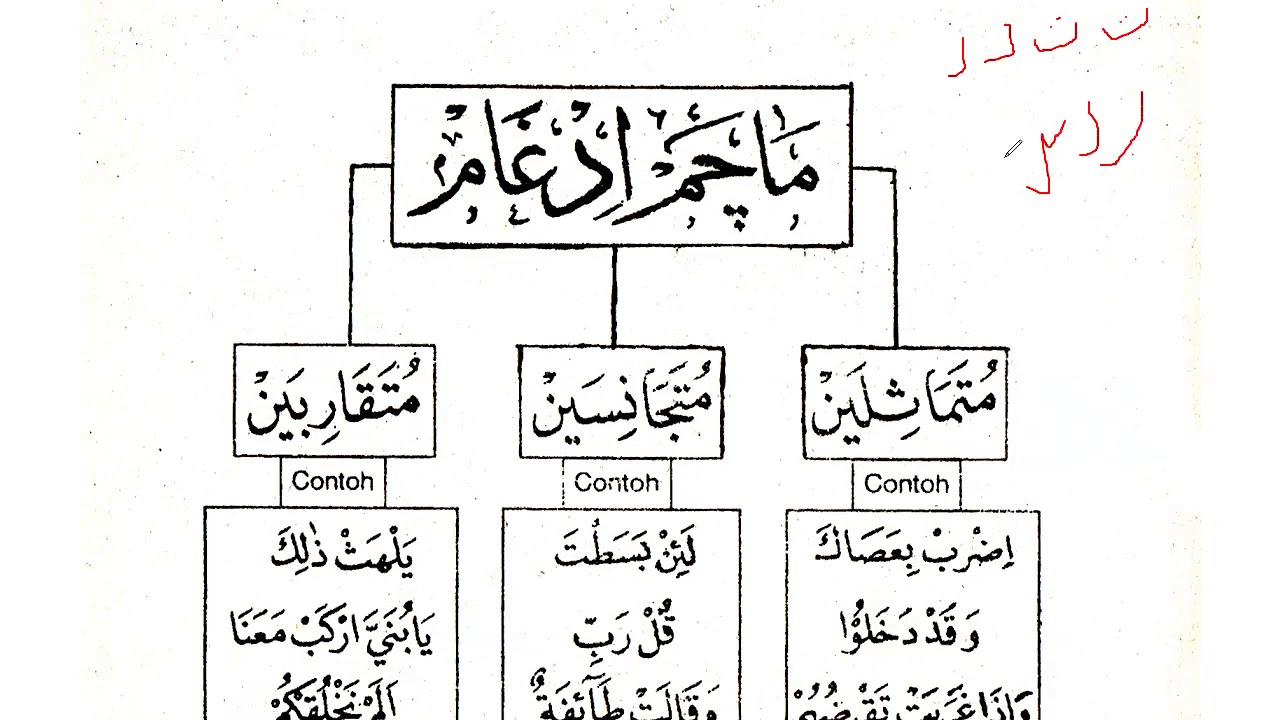 مَاچَمْ اِدْغَامْ
مُتَمَاثِلَيْنْ
Contoh
اِضْرِبْ بِعَصَاكَ
وَقَدْ دَخَلُوْا
وَاِذَا غَرَبَتْ تَقْرِضُهُمْ
مُتَجَانِسَيْنْ
Contoh
لَئِنْ بَسَطْتَ
قُلْ رَبِّ
وَقَالَتْ طَآئِفَةٌ
مُتَقَارِبَيْنْ
Contoh
يَلْهَثْ ذٰلِكَ
يَابُنَيَّ ارْكَبْ مَعَنَا
اَلَمْ نَخْلُقْكُمْ